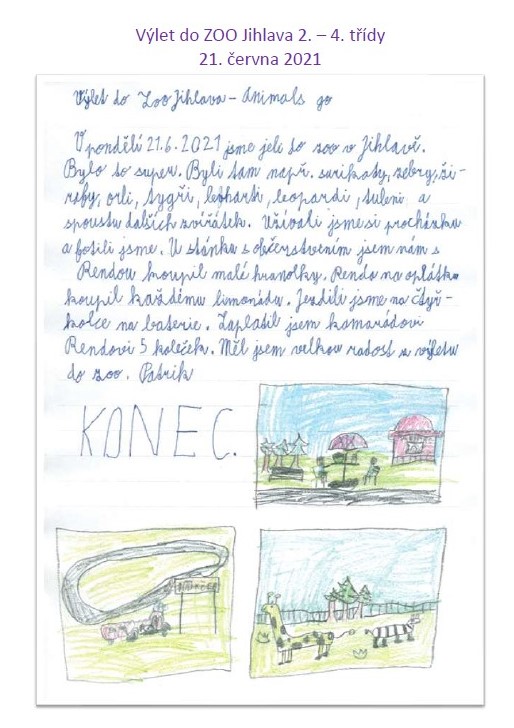 Výlet do ZOO Jihlava 2. – 4. třídy
21. června 2021
Výlet do Zoo Jihlava - Animals go
V pondělí 21.6.2021 jsme jeli do zoo v Jihlavě.
Bylo to super. Byli tam např. surikaty, zebry, ži-
rafy, orli, tygři, levharti, leopardi, tuleni a
spoustu dalších zvířátek. Užívali jsme si procházku
a fotili jsme. U stánku s občerstvením jsem nám s
Rendou koupil malé hranolky. Renda na oplátku
koupil každému limonádu. Jezdili jsme na čtyř-
kolce na baterie. Zaplatil jsem kamarádovi
Rendovi 5 koleček. Měl jsem velkou radost z výletu
do zoo. Patrik
KONEC.